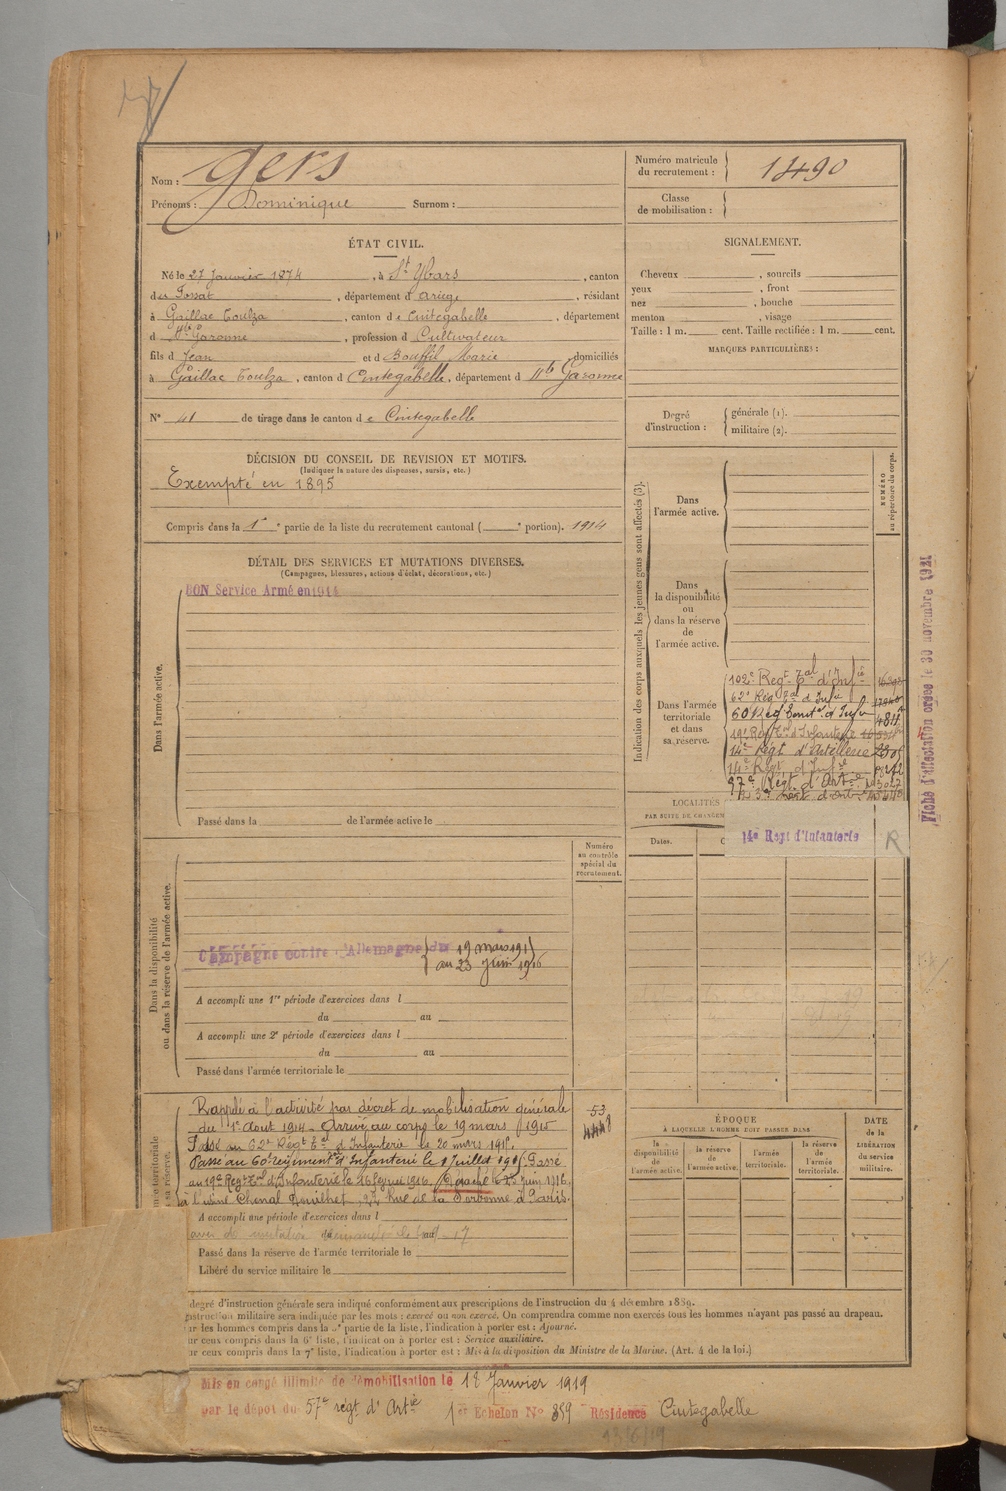 Nom : Gers
Prénoms : Dominique Surnom :
Numéro matricule du recrutement : 1490
Classe de mobilisation :
ÉTAT CIVIL.
Né le 27 Janvier 1874, à St Ybars, canton
du Fossat, département d Ariège, résidant
à Gaillac Toulza, canton de Cintegabelle, département
d Hte Garonne, profession d Cultivateur
fils d Jean et d Bouffil Marie, domiciliés
à Gaillac Toulza, canton d Cintegabelle, département d Hte Garonne
N° 41 de tirage dans le canton de Cintegabelle
SIGNALEMENT.
Cheveux , sourcils
yeux , front
nez , bouche
menton , visage
Taille : 1 m. cent. Taille rectifiée : 1 m. cent.
MARQUES PARTICULIÈRES :
Degré d'instruction : générale (1).
militaire (2).
DÉCISION DU CONSEIL DE REVISION ET MOTIFS.
(Indiquer la nature des dispenses, sursis, etc.)
Exempté en 1895
Compris dans la 1re partie de la liste du recrutement cantonal ( e portion). 1914
DÉTAIL DES SERVICES ET MUTATIONS DIVERSES.
(Campagnes, blessures, actions d'éclat, décorations, etc.)
Dans l'armée active.
BON Service Armé en 1914
Passé dans la de l'armée active le
Indication des corps auxquels les jeunes gens sont affectés (3).
NUMÉRO au répertoire du corps.
Dans l'armée active.
Dans la disponibilité ou dans la réserve de l'armée active.
Dans l'armée territoriale et dans sa réserve.
102e Regt Tal d'Infie
62e Rég Tal d'Infie
60 Rég Territ. d'Infie 4811
19e Rég Tal d'Infanterie
14e Régt d'Artillerie
14e Régt d'Infie
97e Régt d'Artie
LOCALITÉS
PAR SUITE DE CHANGEM
Dates.
14e Regt d'Infanterie R
Fiche d'affectation créée le 30 novembre 1921
Dans la disponibilité ou dans la réserve de l'armée active.
Numéro au contrôle spécial du recrutement.
Campagne contre l'Allemagne du 19 mars 191
au 23 Juin 1916
A accompli une 1re période d'exercices dans l
du au
A accompli une 2e période d'exercices dans l
du au
Passé dans l'armée territoriale le
Rappelé à l'activité par décret de mobilisation générale
du 1er Aout 1914 - Arrivé au corps le 19 mars 1915
Passé au 62e Régt Tal d'Infanterie le 20 mars 1915.
Passé au 60e régiment Tal d'Infanterie le 1 Juillet 1915. Passé
au 19e Regt Tal d'Infanterie le 16 février 1916. Détaché le 23 Juin 1916.
à l'usine Chenal Douilhet, 22 Rue de la Sorbonne à Paris.
53
4448
A accompli une période d'exercices dans l
du au
Passé dans la réserve de l'armée territoriale le
Libéré du service militaire le
ÉPOQUE
À LAQUELLE L'HOMME DOIT PASSER DANS
la disponibilité de l'armée active.
la réserve de l'armée active.
l'armée territoriale.
la réserve de l'armée territoriale.
DATE de la LIBÉRATION du service militaire.
degré d'instruction générale sera indiqué conformément aux prescriptions de l'instruction du 4 décembre 1889.
instruction militaire sera indiquée par les mots : exercé ou non exercé. On comprendra comme non exercés tous les hommes n'ayant pas passé au drapeau.
ur les hommes compris dans la partie de la liste, l'indication à porter est : Ajourné.
ur ceux compris dans la 6e liste, l'indication à porter est : Service auxiliaire.
ur ceux compris dans la 7e liste, l'indication à porter est : Mis à la disposition du Ministre de la Marine. (Art. 4 de la loi.)
Mis en congé illimité de démobilisation le 12 Janvier 1919
par le dépôt du 57e régt d'Artie 1er Echelon N° 359 Résidence Cintegabelle